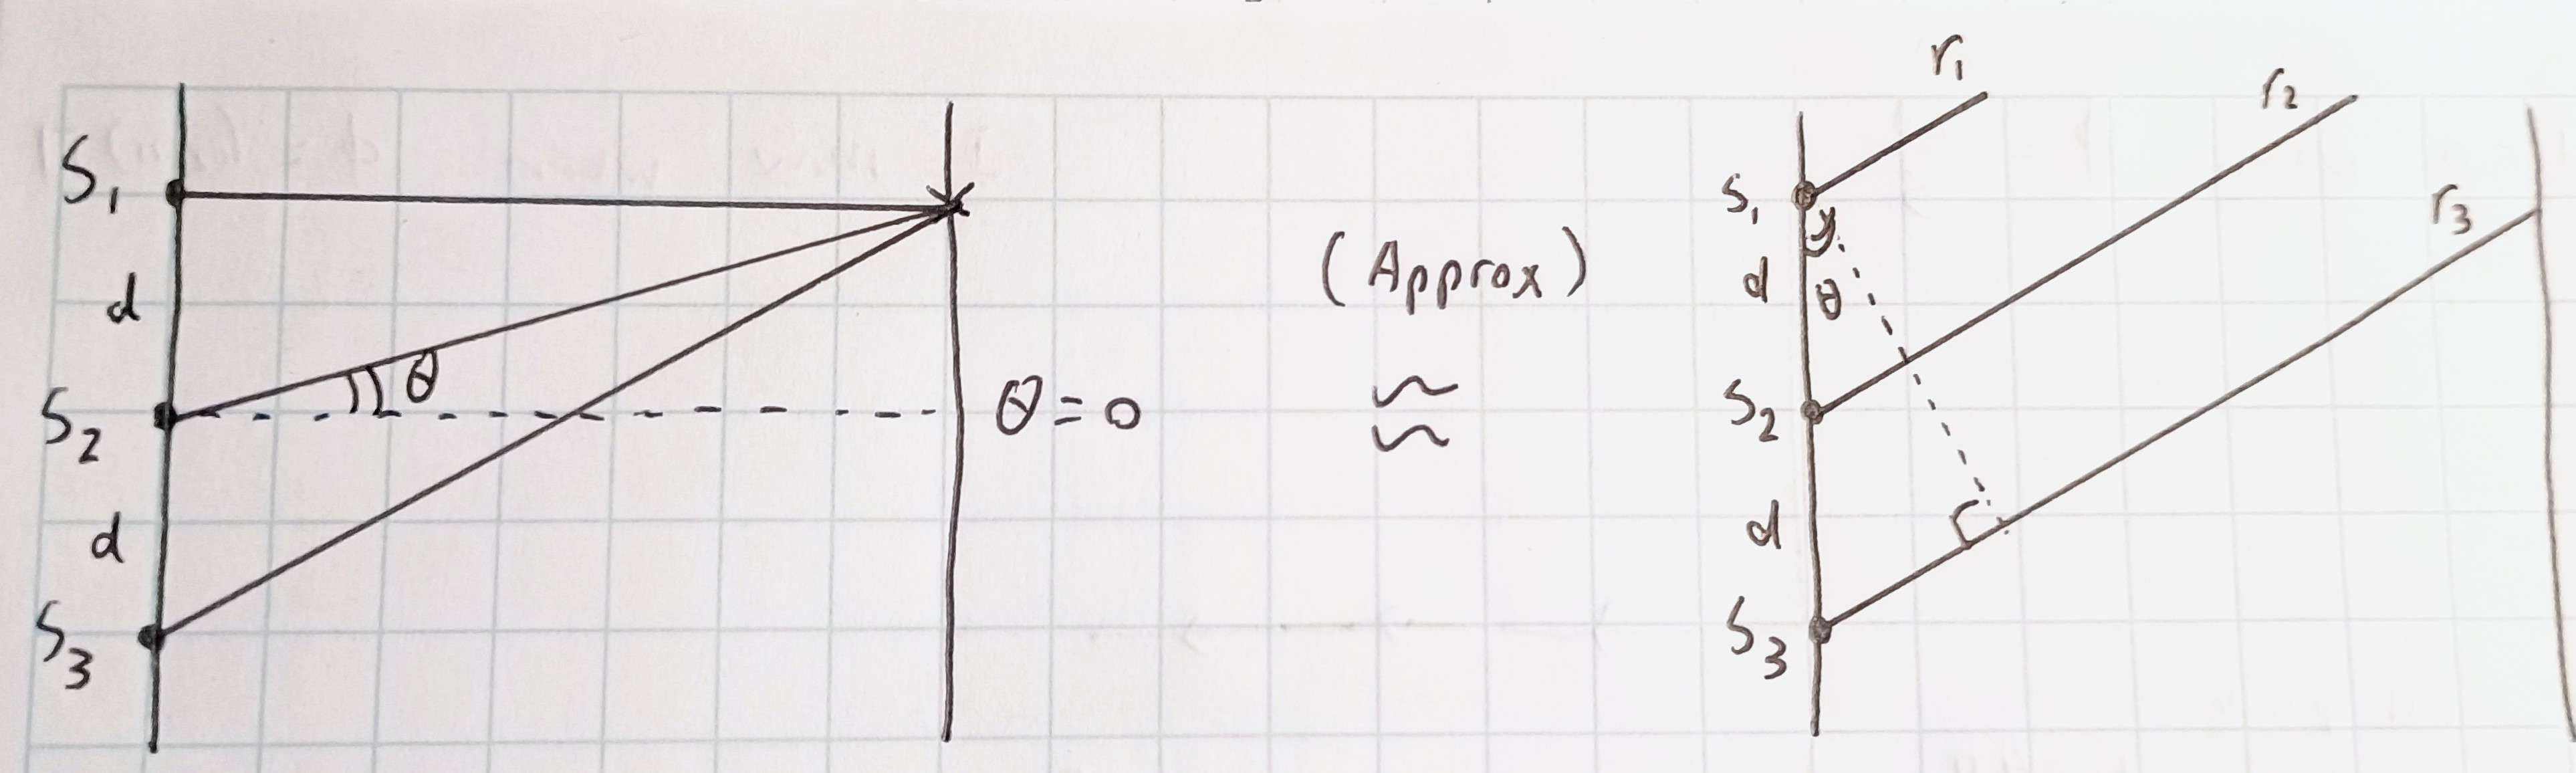 S₁
d
θ
S₂
θ = 0
d
S₃
(Approx)
≈
r₁
r₂
r₃
S₁
d
θ
S₂
d
S₃